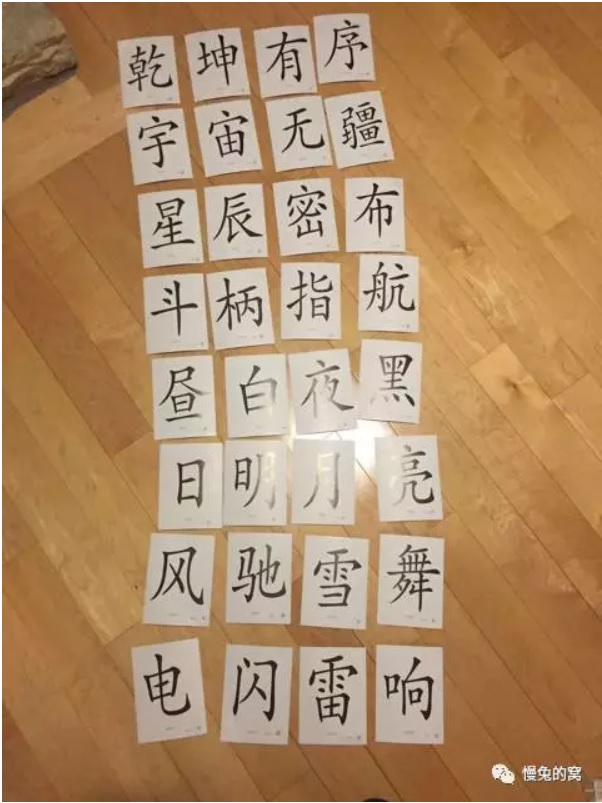 乾坤有序
宇宙无疆
星辰密布
斗柄指航
昼白夜黑
日明月亮
风驰雪舞
电闪雷响
慢兔的窝